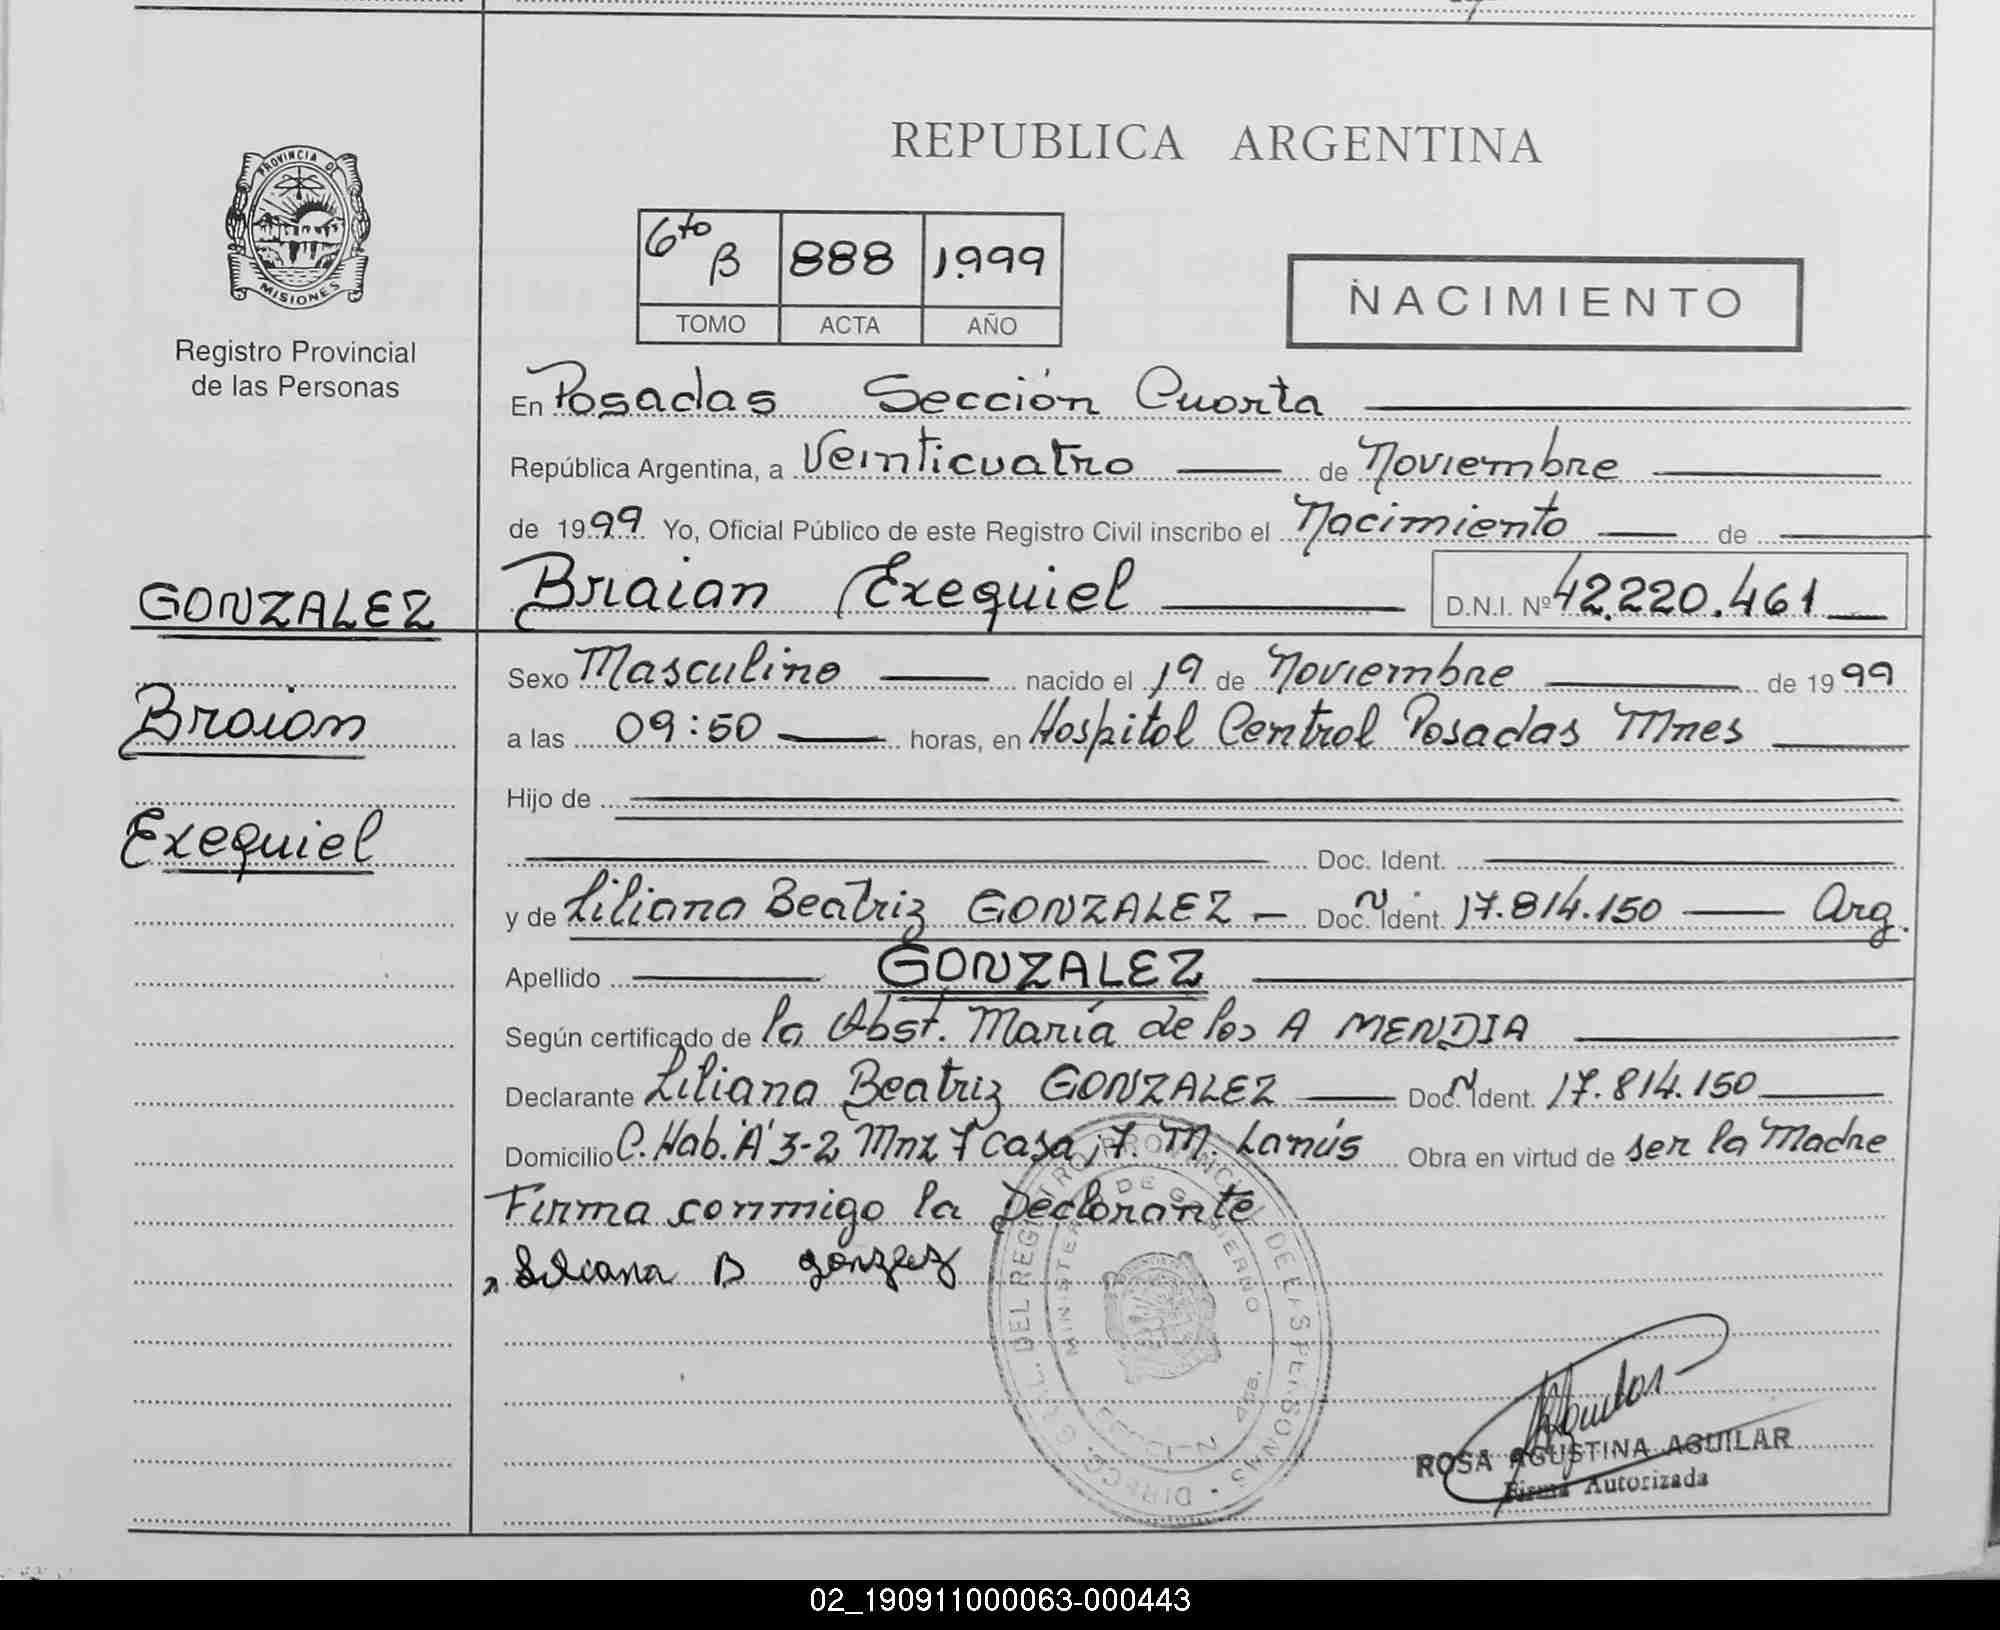 REPUBLICA ARGENTINA
PROVINCIA DE
MISIONES
Registro Provincial
de las Personas
6to B 888 1999
TOMO ACTA AÑO
NACIMIENTO
En Posadas Sección Cuarta
República Argentina, a Veinticuatro de Noviembre
de 1999 Yo, Oficial Público de este Registro Civil inscribo el Nacimiento de
GONZALEZ
Braian Exequiel D.N.I. Nº 42.220.461
Sexo Masculino nacido el 19 de Noviembre de 1999
Braian
a las 09:50 horas, en Hospital Central Posadas Mnes
Hijo de
Exequiel
Doc. Ident.
y de Liliana Beatriz GONZALEZ Doc. Ident. 17.814.150 Arg.
Apellido GONZALEZ
Según certificado de la Obst. María de los A MENDIA
Declarante Liliana Beatriz GONZALEZ Doc. Ident. 17.814.150
Domicilio C. Hab. "A" 3-2 Mnz 7 casa 17. M. Lanús Obra en virtud de ser la Madre
Firma conmigo la Declarante
Liliana B gonzalez
DIRECC. GRAL. DEL REGISTRO PROVINCIAL DE LAS PERSONAS
MINISTERIO DE GOBIERNO
ROSA AGUSTINA AGUILAR
Firma Autorizada
02_190911000063-000443